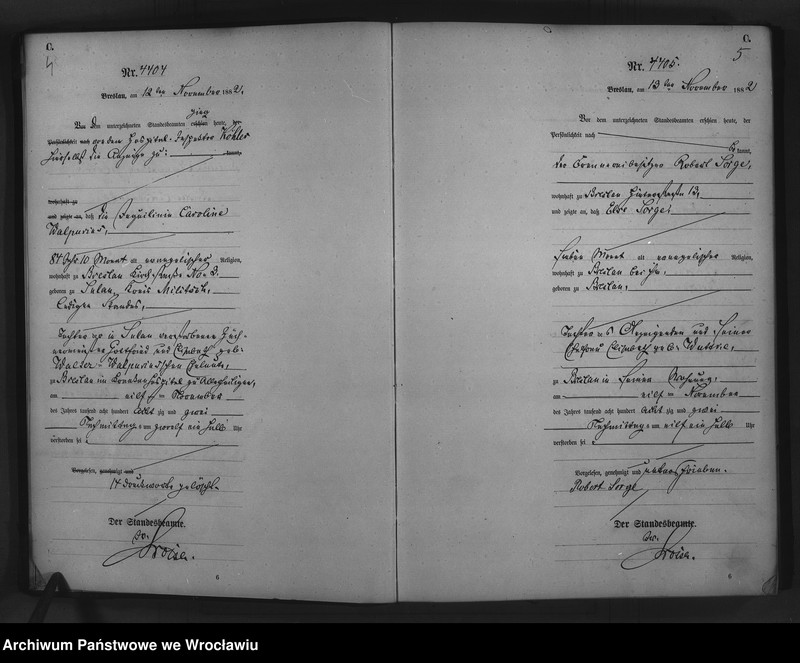 C.
4
Nr. 4404
Breslau, am 12 ten November 1882.
ging
Vor dem unterzeichneten Standesbeamten erschien heute, der
Persönlichkeit nach von dem Hospital-Inspektor Köhler
hierselbst die Anzeige zu: kannt,
wohnhaft zu
und zeigte an, daß die Caroline
Walpurius,
84 Jahr 10 Monat alt evangelischer Religion,
wohnhaft zu Breslau Kirchstraße No. 3,
geboren zu Sulau, Kreis Militsch,
ledigen Standes,
Tochter der in Sulau verstorbenen
Gottfried und Elisabeth geb.
Walter - Walpuriusschen Eheleute,
zu Breslau im Krankenhospital zu Allerheiligen,
am eilf ten November
des Jahres tausend acht hundert acht zig und zwei
Nachmittags um zwoelf ein halb Uhr
verstorben sei
Vorgelesen, genehmigt und
14 Druckworte gelöscht.
Der Standesbeamte.
C.
5
Nr. 4405.
Breslau, am 13 ten November 1882
Vor dem unterzeichneten Standesbeamten erschien heute, der
Persönlichkeit nach
be kannt,
der Robert Sorge,
wohnhaft zu Breslau 13,
und zeigte an, daß Else Sorge,
sieben Monat alt evangelischer Religion,
wohnhaft zu Breslau bei ihm,
geboren zu Breslau,
Tochter des Anzeigenden und seiner
Ehefrau Elisabeth geb.
zu Breslau in seiner Wohnung,
am eilf ten November
des Jahres tausend acht hundert acht zig und zwei
Nachmittags um eilf ein halb Uhr
verstorben sei
Vorgelesen, genehmigt und unterschrieben.
Robert Sorge
Der Standesbeamte.
6
6
Archiwum Państwowe we Wrocławiu